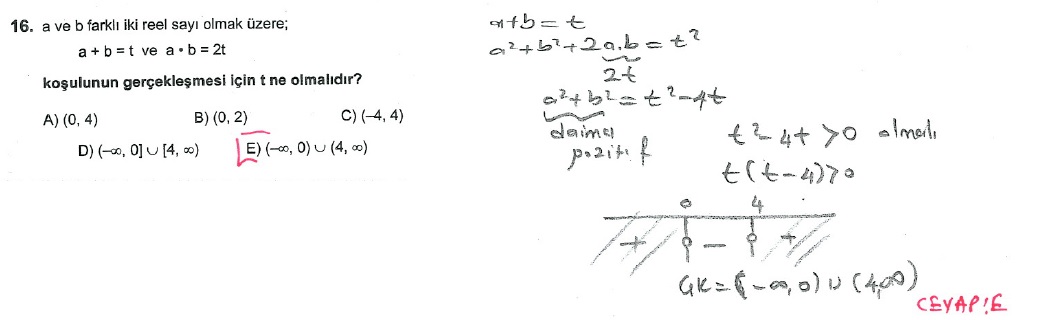 16. a ve b farklı iki reel sayı olmak üzere;
a + b = t ve a • b = 2t
koşulunun gerçekleşmesi için t ne olmalıdır?
A) (0, 4) B) (0, 2) C) (–4, 4)
D) (–∞, 0] ∪ [4, ∞) E) (–∞, 0) ∪ (4, ∞)
a+b = t
a²+b²+2a.b = t²
2t
a²+b² = t²-4t
daima
pozitif
t²-4t >0 olmalı
t(t-4)>0
0 4
+ - +
GK = (-∞, 0) ∪ (4,∞)
CEVAP:E